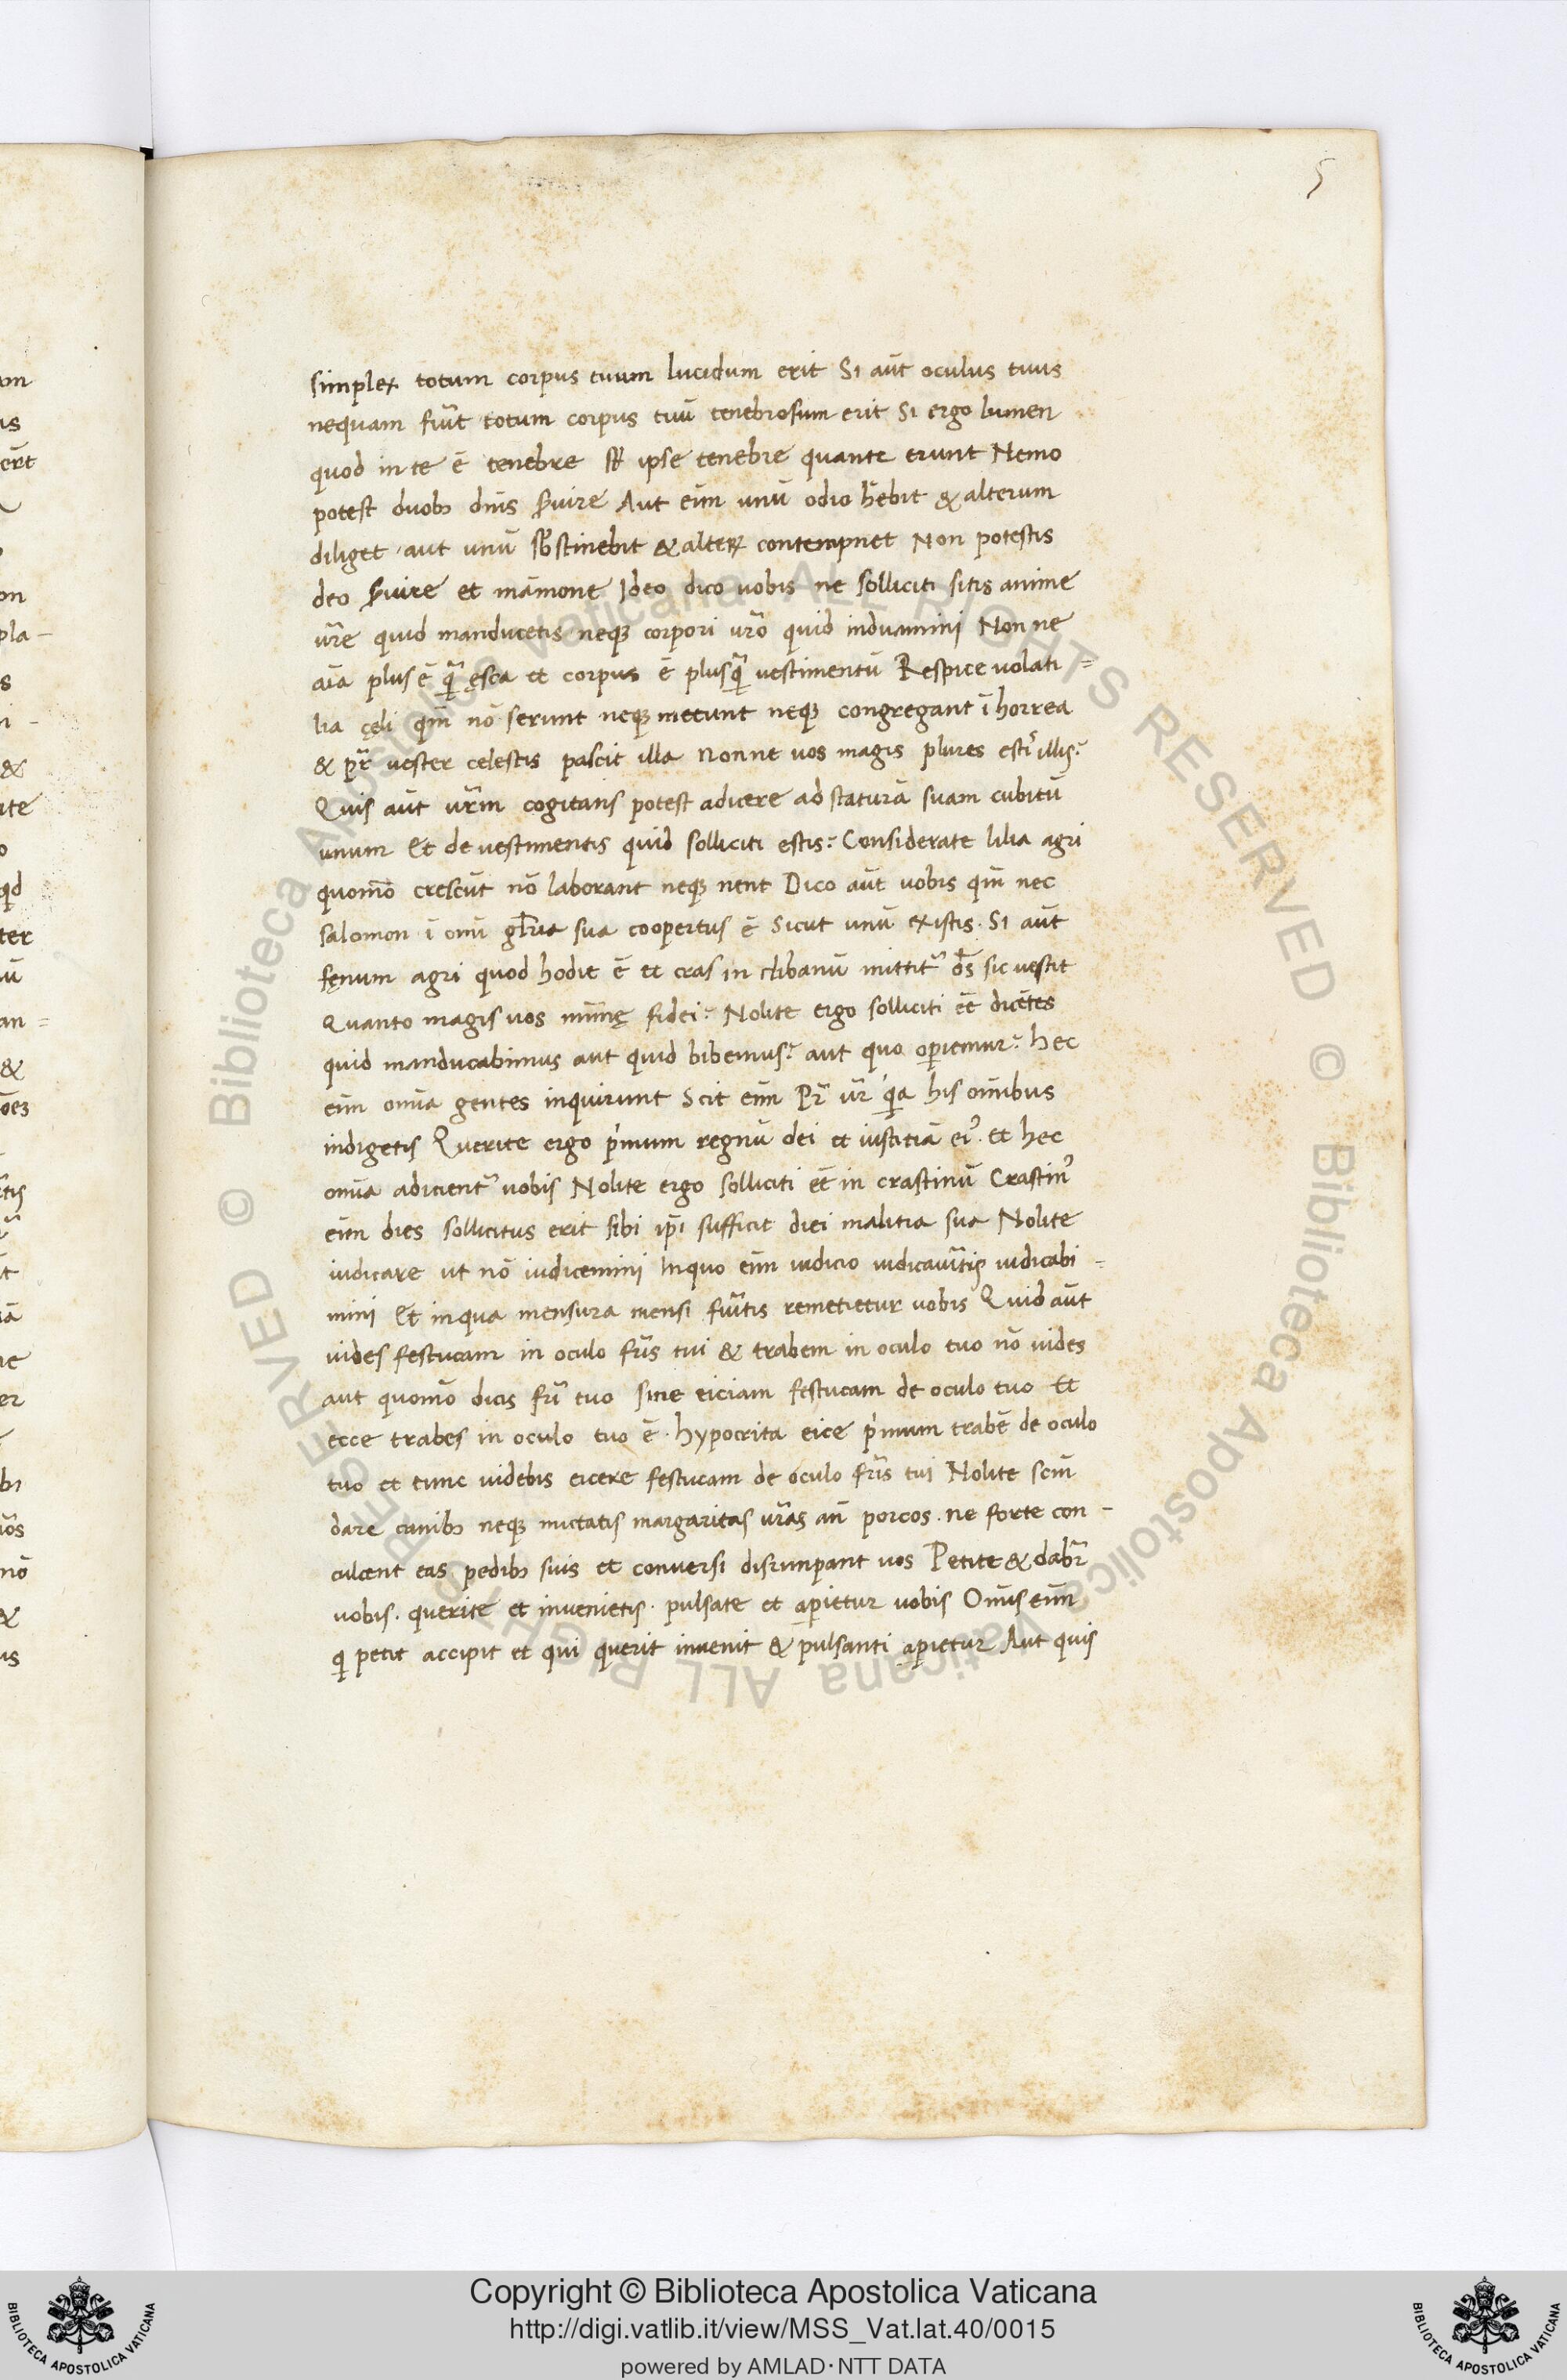 5
simplex totum corpus tuum lucidum erit Si aūt oculus tuus
nequam fu̅it totum corpus tuū tenebrosum erit Si ergo lumen
quod in te ē tenebre ipse tenebre quante erunt Nemo
potest duobꝫ dn̄is ẜuire Aut eīm unū odio hēbit & alterum
diliget aut unū sb̅stinebit & alteꝝ contempnet Non potestis
deo ẜuire et māmone Ideo dico uobis ne solliciti sitis anime
ur̄e quid manducetis neqꝫ corpori ur̄o quid induamini Non ne
aīa plus ē qᷓ ęsca et corpus ē plusqᷓ vestimentū Respice uolati=
lia cęli qm̄ nō serunt neqꝫ metunt neqꝫ congregant ī horrea
& pr̄ uester celestis pascit illa Nonne uos magis plures estis illis?
Quis aūt ur̄m cogitans potest adicere ad staturā suam cubitū
unum Et de vestimentis quid solliciti estis? Considerate lilia agri
quomō crescūt nō laborant neqꝫ nent Dico aūt uobis qm̄ nec
Salomon ī omī gl̄ria sua coopertus ē Sicut unū existis. Si aūt
fęnum agri quod hodie ē et cras in clibanū mittit᷑ ds̄ sic vestit
Quanto magis uos mīmę fidei? Nolite ergo solliciti eē dicētes
quid manducabimus aut quid bibemus? aut quo oꝑiemur? hec
eīm om̄ia gentes inquirunt Scit eīm Pr̄ ur̄ qa his om̄ibus
indigetis Querite ergo pͥmum regnū dei et iustitiā eiꝰ. et hec
om̄ia adicient᷑ uobis Nolite ergo solliciti eē in crastinū Crastinꝰ
eīm dies sollicitus erit sibi ip̄i sufficit diei malitia sua Nolite
iudicare ut nō iudicemini Inquo eīm iudicio iudicau̅itis iudicabi-
mini Et inqua mensura mensi fu̅itis remetietur uobis Quid aūt
uides festucam in oculo fr̄is tui & trabem in oculo tuo nō uides
aut quomō dicis fr̄i tuo sine eiciam festucam de oculo tuo Et
ecce trabes in oculo tuo ē. hypocrita eice pͥmum trabē de oculo
tuo et tunc uidebis eicere festucam de oculo fr̄is tui Nolite scm̄
dare canibꝫ neqꝫ mictatis margaritas ur̄as an̄ porcos. ne forte con-
culcent eas pedibꝫ suis et conuersi disrumpant uos Petite & dabit᷑
uobis. querite et inuenietis. pulsate et aꝑietur uobis Om̄is eīm
q petit accipit et qui querit inuenit & pulsanti aꝑietur Aut quis
Copyright © Biblioteca Apostolica Vaticana
http://digi.vatlib.it/view/MSS_Vat.lat.40/0015
powered by AMLAD·NTT DATA